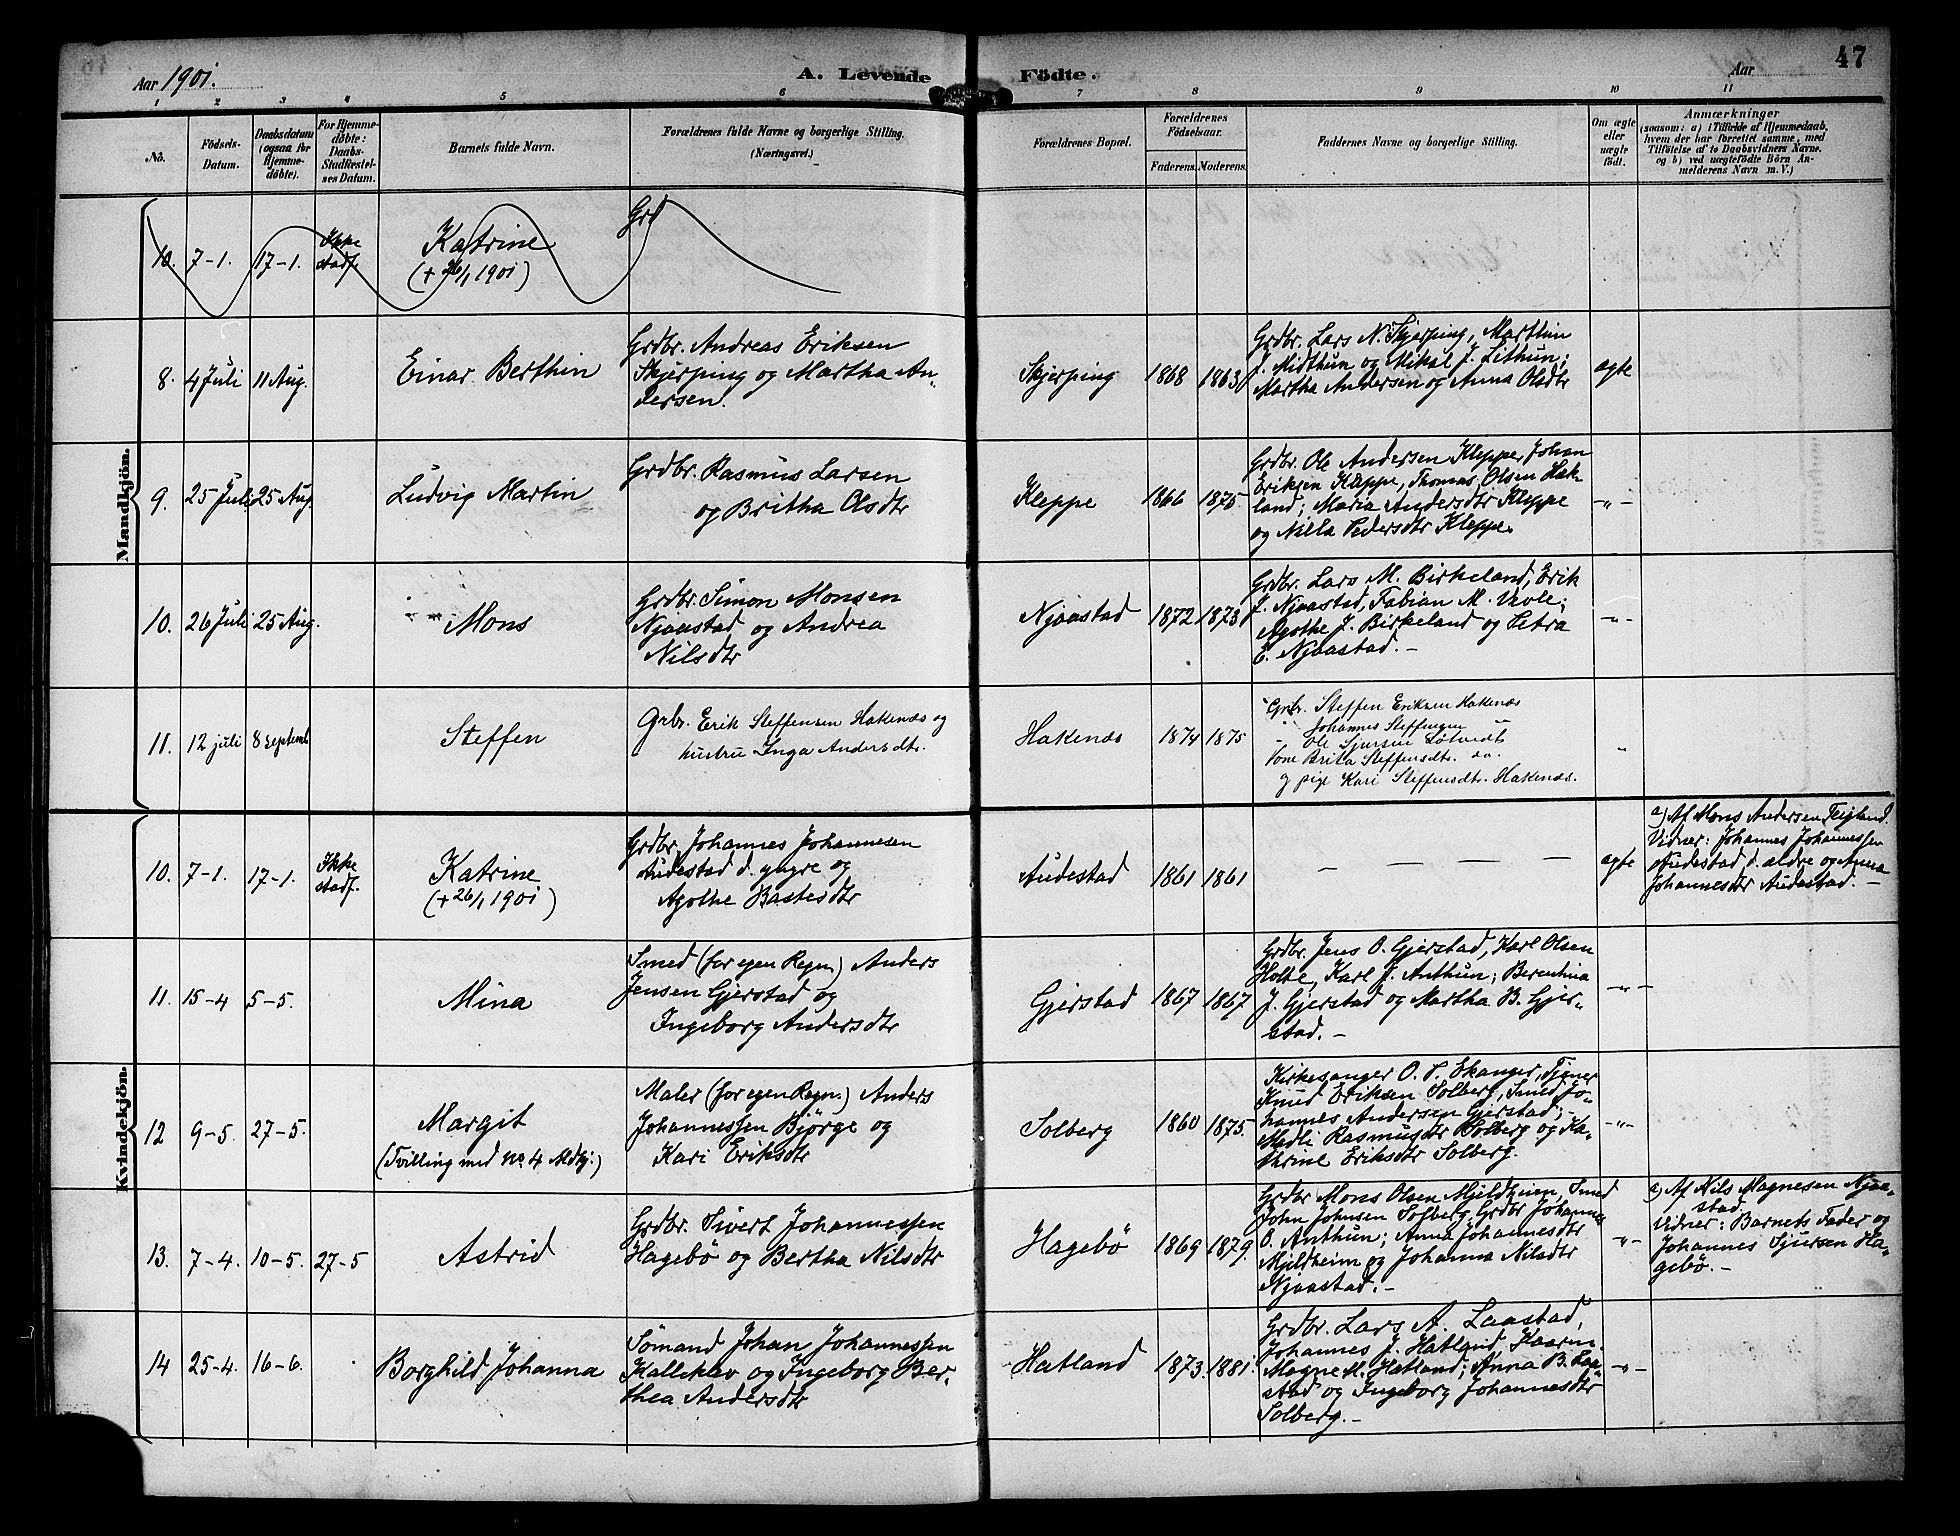 Aar 1901.
A. Levende Födte.
Aar
47
1 2 3 4 5 6 7 8 9 10 11
No.
Födsels-
Datum.
Daabsdatum
(ogsaa for
Hjemme-
döbte).
For Hjemme-
döbte:
Daabs-
Stadfæstel-
ses Datum.
Barnets fulde Navn.
Forældrenes fulde Navne og borgerlige Stilling.
(Næringsvei.)
Forældrenes Bopæl.
Forældrenes
Födselsaar.
Faderens. Moderens.
Faddernes Navne og borgerlige Stilling.
Om ægte
eller
uægte
födt.
Anmærkninger
(saasom: a) i Tilfælde af Hjemmedaab,
hvem der har forrettet samme, med
Tilföielse af to Daabsvidners Navne.
og b) ved uægtefödte Börn An-
melderens Navn m. V.)
Mandkjön.
10. 7-1. 17-1. Ikke
stadf.
Katrine
(+ 26/1 1901)
Grd
8. 4 Juli 11 Aug.
Einar Berthin
Grdbr. Andreas Eriksen
Skjerping og Martha An-
dersen.
Skjerping 1868 1863
Grdbr. Lars N. Skjerping, Marthin
J. Midthun og Mikal J. Lithun;
Martha Andersen og Anna Olsdtr
ægte
9. 25 Juli 25 Aug.
Ludvig Martin
Grdbr. Rasmus Larsen
og Britha Olsdtr
Kleppe 1866 1875
Grdbr. Ole Andersen Kleppe, Johan
Eriksen Kleppe, Thomas Olsen Hak-
land; Maria Andersdtr Kleppe
og Nilla Pedersdtr Kleppe.
-"-
10. 26 Juli 25 Aug.
Mons
Grdbr. Simon Monsen
Njaastad og Andrea
Nilsdtr
Njaastad 1872 1873
Grdbr. Lars M. Birkeland, Erik
J. Njaastad, Fabian M. Viole;
Agothe J. Birkeland og Petra
E. Njaastad. -
-"-
11. 12 juli 8 septemb
Steffen
Grbr. Erik Steffensen Hakenæs og
hustru Inga Andersdtr.
Hakenæs 1874 1875
Grbr. Steffen Eriksen Hakenæs
" Johannes Steffensen "
" Ole Sjursen Løtvedt
Kone Brita Steffensdtr. do.
og pige Kari Steffensdtr. Hakenæs.
"
Kvindekjön.
10. 7-1. 17-1. Ikke
stadf.
Katrine
(+ 26/1 1901)
Grdbr. Johannes Johannesen
Audestad d. yngre og
Agothe Bastesdtr
Audestad 1861 1861
- - - -
ægte
a) Af Mons Andersen Teigland.
Vidner: Johannes Johannessen
Audestad d. ældre og Anna
Johannesdtr Audestad. -
11. 15-4 5-5.
Mina
Smed (for egen Regn.) Anders
Jensen Gjerstad og
Ingeborg Andersdtr
Gjerstad 1867 1867
Grdbr. Jens O. Gjerstad, Karl Olsen
Holte, Karl J. Anthun; Berentina
J. Gjerstad og Martha B. Gjer-
stad. -
-"-
12 9-5. 27-5.
Margit
(Tvilling med No 4 Mdkj:)
Maler (for egen Regn.) Anders
Johannessen Björge og
Kari Eriksdtr
Solberg 1860 1875.
Kirkesanger O. S. Skanger, Tjener
Knud Eriksen Solberg, Smed Jo-
hannes Andersen Gjerstad;
Madli Rasmusdtr Solberg og Ka-
thrine Eriksdtr Solberg.
-"-
13. 7-4. 10-5. 27-5
Astrid
Grdbr. Sivert Johannessen
Hagebö og Bertha Nilsdtr
Hagebö 1869 1879.
Grdbr Mons Olsen Mjeldheim, Smed
John Johnsen Solberg, Grdbr Johannes
O. Anthun; Anna Johannesdtr
Mjeldheim og Johanna Nilsdtr
Njaastad. -
-"-
a) Af Nils Magnesen Njaa-
stad.
Vidner: Barnets Fader og
Johannes Sjursen Ha-
gebö. -
14 25-4. 16-6.
Borghild Johanna
Sömand Johan Johannessen
Kalleklev og Ingeborg Ber-
thea Andersdtr
Hatland 1873. 1881.
Grdbr. Lars A. Laastad,
Johannes J. Hatland, Kaarm.
Magne M. Hatland; Anna B. Laa-
stad og Ingeborg Johannesdtr
Solberg. -
-"-